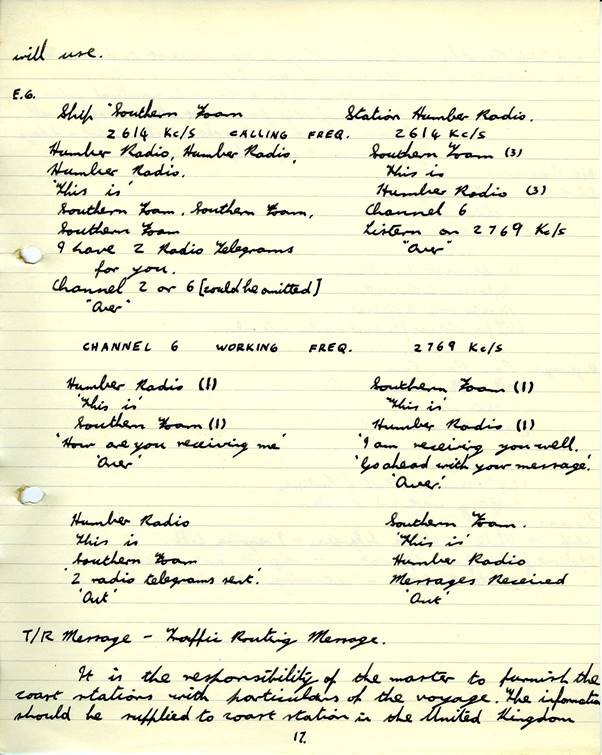 will use.
E.G.
Ship "Southern Foam Station Humber Radio.
2614 Kc/s CALLING FREQ. 2614 Kc/s
Humber Radio, Humber Radio, Southern Foam (3)
Humber Radio. This is
'This is' Humber Radio (3)
Southern Foam, Southern Foam, Channel 6
Southern Foam Listen on 2769 Kc/s
I have 2 Radio Telegrams "Over"
for you.
Channel 2 or 6 [could be omitted]
"Over"
CHANNEL 6 WORKING FREQ. 2769 Kc/s
Humber Radio (1) Southern Foam (1)
'This is' 'This is'
Southern Foam (1) Humber Radio (1)
'How are you receiving me' 'I am receiving you well.
'Over' 'Go ahead with your message'.
'Over.'
Humber Radio Southern Foam.
This is 'This is'
Southern Foam Humber Radio
'2 radio telegrams sent'. Messages Received
'Out' 'Out'
T/R Message - Traffic Routing Message.
It is the responsibility of the master to furnish the
coast stations with particulars of the voyage. The information
should be supplied to coast station in the United Kingdom
17.